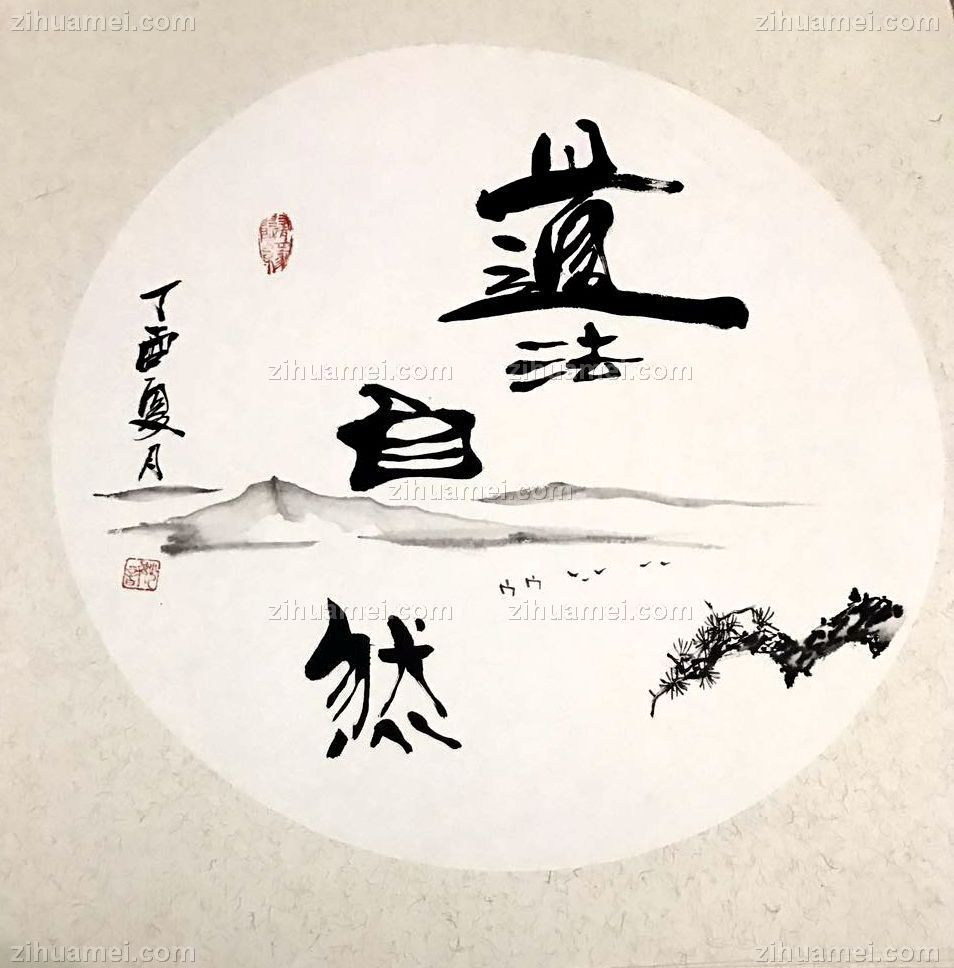 zihuamei.com zihuamei.com
道法
自然
丁酉夏月
zihuamei.com zihuamei.com
zihuamei.com
zihuamei.com zihuamei.com
zihuamei.com zihuamei.com